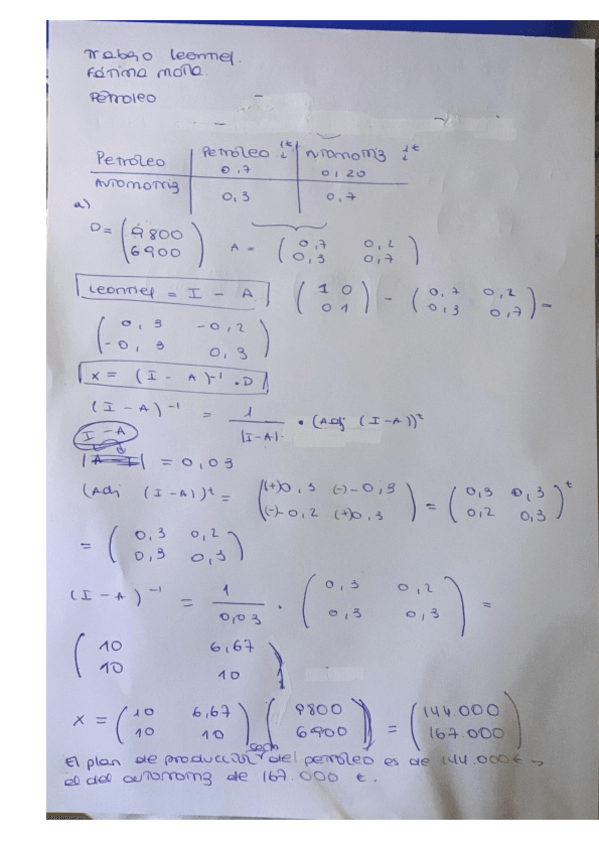 Trabajo Leonnel.
Fátima Molla.
Petróleo
Petróleo 1t Automotriz 1t
Petróleo 0,7 0,20
Automotriz 0,3 0,7
a)
D = (9800 6900) A = (0,7 0,2 0,3 0,7)
Leonnel = I - A (1 0 0 1) - (0,7 0,2 0,3 0,7) =
(0,3 -0,2 -0,3 0,3)
X = (I - A)-1 . D
(I - A)-1 = 1 / |I-A| . (Adj (I-A))t
I - A
|A - I| = 0,03
(Adj (I-A))t = ((+)0,3 (-)-0,3 (-)-0,2 (+)0,3) = (0,3 0,3 0,2 0,3)t
= (0,3 0,2 0,3 0,3)
(I - A)-1 = 1 / 0,03 . (0,3 0,2 0,3 0,3) =
(10 6,67 10 10)
X = (10 6,67 10 10) (9800 6900) = (144.000 167.000)
El plan de producción del petroleo es de 144.000 € y
el del automotriz de 167.000 €.